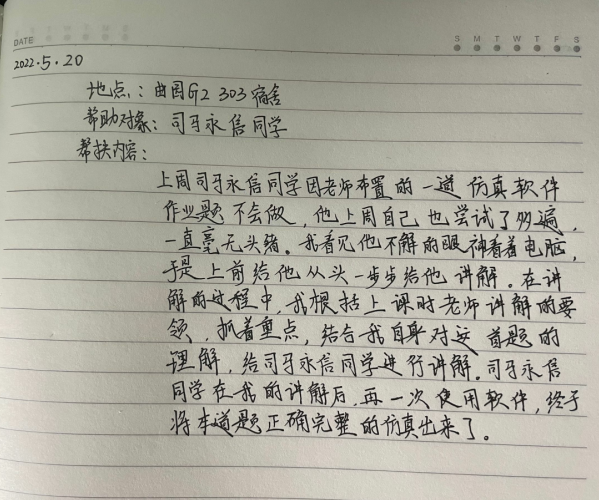 DATE
S M T W T F S
2022.5.20
地点：曲园G2 303宿舍
帮助对象：司马永信同学
帮扶内容：
上周司马永信同学因老师布置的一道仿真软件
作业题不会做，他上周自己也尝试了多遍，
一直毫无头绪。我看见他不解的眼神看着电脑，
于是上前给他从头一步步给他讲解。在讲
解的过程中，我根据上课时老师讲解的要
领，抓着重点，结合我自身对这道题的
理解，给司马永信同学进行讲解。司马永信
同学在我的讲解后，再一次使用软件，终于
将本道题正确完整的仿真出来了。